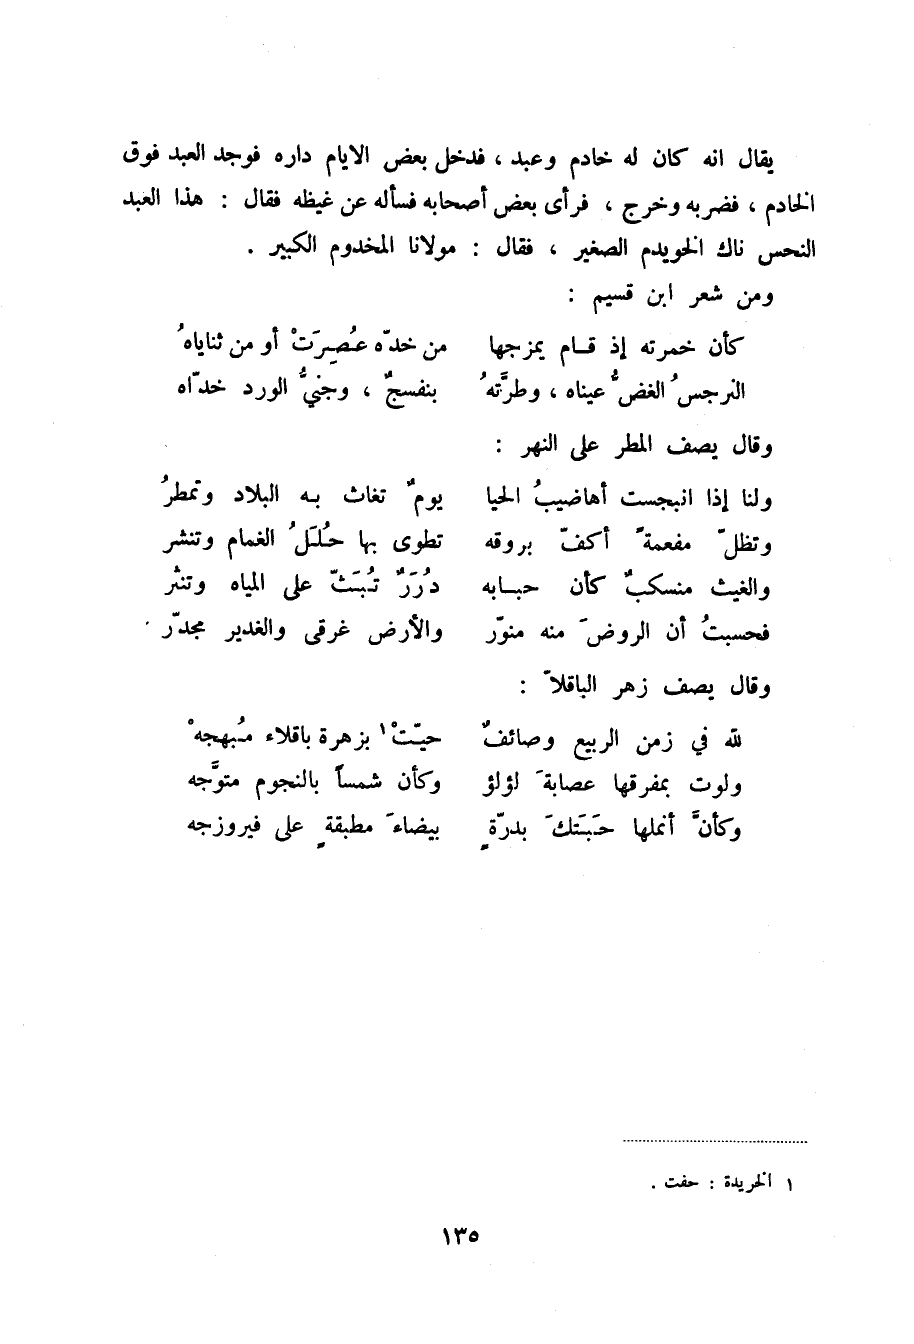 يقال انه كان له خادم وعبد ، فدخل بعض الايام داره فوجد العبد فوق
الخادم ، فضربه وخرج ، فرأى بعض أصحابه فسأله عن غيظه فقال : هذا العبد
النحس ناك الخويدم الصغير ، فقال : مولانا المخدوم الكبير .
ومن شعر ابن قسيم :
كأن خمرته إذ قـام يمزجها من خدّه عُصِرَتْ أو من ثناياهُ
النرجسُ الغضُّ عيناه ، وطرَّتهُ بنفسجٌ ، وجنيُّ الورد خدّاه
وقال يصف المطر على النهر :
ولنا إذا انبجست أهاضيبُ الحيا يومٌ تغاث به البلاد وتمطرُ
وتظلّ مفعمةً أكفّ بروقه تطوى بها حُلَلُ الغمام وتنشر
والغيث منسكبٌ كأن حبـابه دُرَرٌ تُبَثّ على المياه وتنثر
فحسبتُ أن الروضَ منه منوّر والأرض غرقى والغدير مجدّر .
وقال يصف زهر الباقلاّ :
لله في زمن الربيع وصائفٌ حيّتْ١ بزهرة باقلاء مُبهجهْ
ولوت بمفرقها عصابةَ لؤلؤ وكأن شمساً بالنجوم متوَّجه
وكأنَّ أنملها حَبَتكَ بدرّةٍ بيضاءَ مطبقةٍ على فيروزجه
١ الخريدة : حفت .
١٣٥